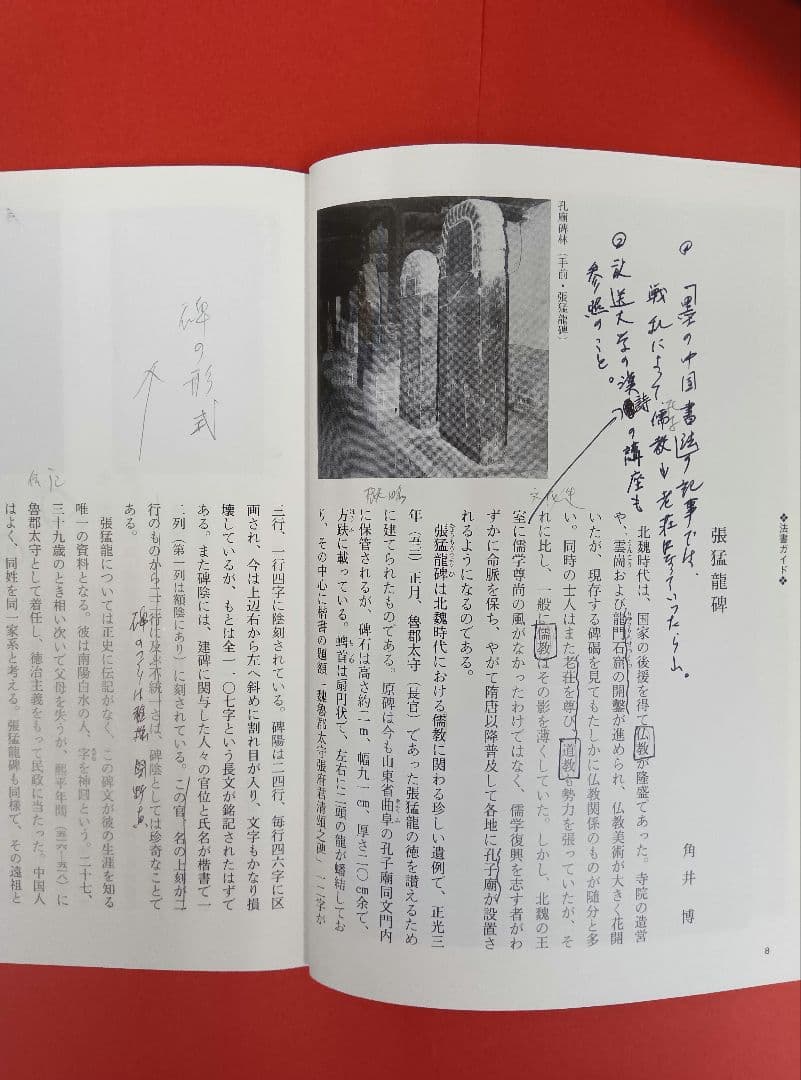 ❖法書ガイド❖
張猛龍碑
角井 博
北魏時代は、国家の後援を得て仏教が隆盛であった。寺院の造営
や、雲崗および龍門石窟の開鑿が進められ、仏教美術が大きく花開
いたが、現存する碑碣を見てもたしかに仏教関係のものが随分と多
い。同時の士人はまた老荘を尊び、道教も勢力を張っていたが、そ
れに比し、一般に儒教はその影を薄くしていた。しかし、北魏の王
室に儒学尊尚の風がなかったわけではなく、儒学復興を志す者がわ
ずかに命脈を保ち、やがて隋唐以降普及して各地に孔子廟が設置さ
れるようになるのである。
張猛龍碑は北魏時代における儒教に関わる珍しい遺例で、正光三
年（五二二）正月、魯郡太守（長官）であった張猛龍の徳を讃えるため
に建てられたものである。原碑は今も山東省曲阜の孔子廟同文門内
に保管されるが、碑石は高さ約二m、幅九一cm、厚さ二〇cm余で、
方趺に載っている。碑首は扇円状で、左右に二頭の龍が蟠結してお
り、その中心に楷書の題額「魏魯郡太守張府君清頌之碑」一二字が
孔廟碑林（手前・張猛龍碑）
「墨の中国書法」の記事では、
戦乱によって儒教も老荘
②放送大学の漢詩の講座も
参照のこと。
文化史
8
三行、一行四字に陰刻されている。碑陽は二四行、毎行四六字に区
画され、今は上辺右から左へ斜めに割れ目が入り、文字もかなり損
壊しているが、もとは全一一〇七字という長文が銘記されたはずで
ある。また碑陰には、建碑に関与した人々の官位と氏名が楷書で一
二列（第一列は額陰にあり）に刻されている。この官、名の上刻が二
行のものから二十三行に及ぶ不統一さは、碑陰としては珍奇なことで
ある。
張猛龍については正史に伝記がなく、この碑文が彼の生涯を知る
唯一の資料となる。彼は南陽白水の人、字を神䆳という。二十七、
三十九歳のとき相い次いで父母を失うが、熙平年間（五一六‐五一八）に
魯郡太守として着任し、徳治主義をもって民政に当たった。中国人
はよく、同姓を同一家系と考える。張猛龍碑も同様で、その遠祖と
碑の形式
伝記